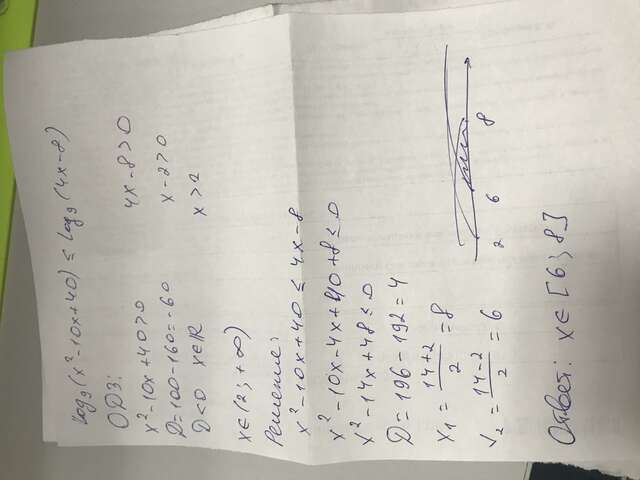 log₉(x²-10x+40) ≤ log₉(4x-8)
ОДЗ:
x²-10x+40>0 4x-8>0
D=100-160=-60 x-2>0
D<0 x∈R x>2
x∈(2;+∞)
Решение:
x²-10x+40 ≤ 4x-8
x²-10x-4x+40+8≤0
x²-14x+48≤0
D=196-192=4
x₁=14+2/2=8
x₂=14-2/2=6
2 6 8
Ответ: x∈[6;8]